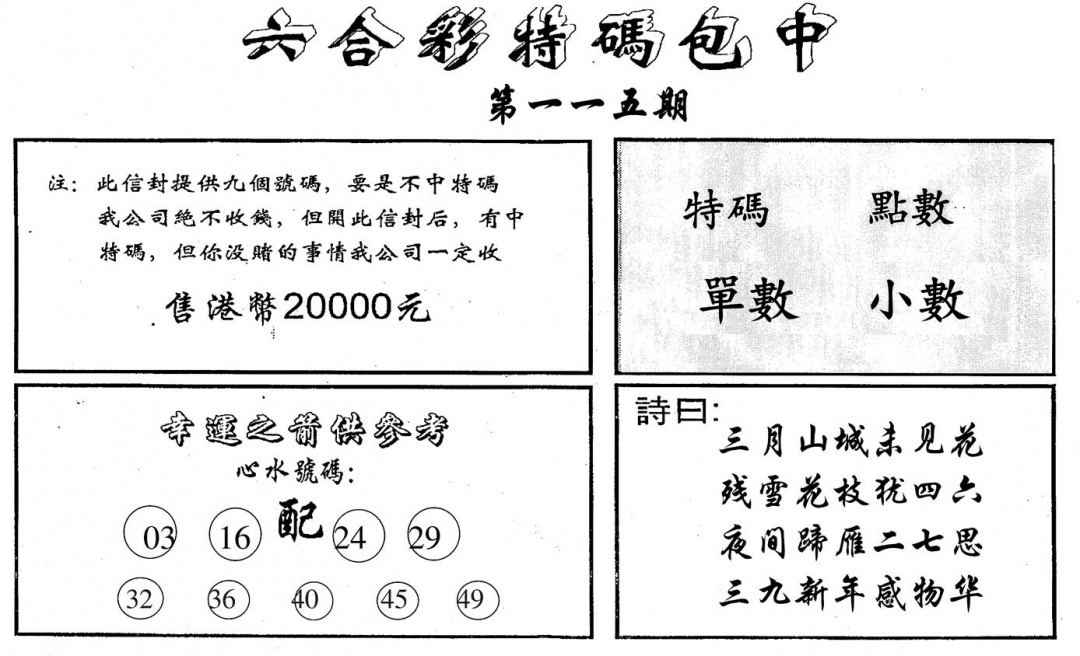 六合彩特碼包中
第一一五期
注：此信封提供九個號碼，要是不中特碼
我公司絕不收錢，但開此信封后，有中
特碼，但你没賭的事情我公司一定收
售港幣20000元
特碼 點數
單數 小數
幸運之箭供參考
心水號碼：
03 16 配 24 29
32 36 40 45 49
詩曰：
三月山城未见花
残雪花枝犹四六
夜间蹄雁二七思
三九新年感物华